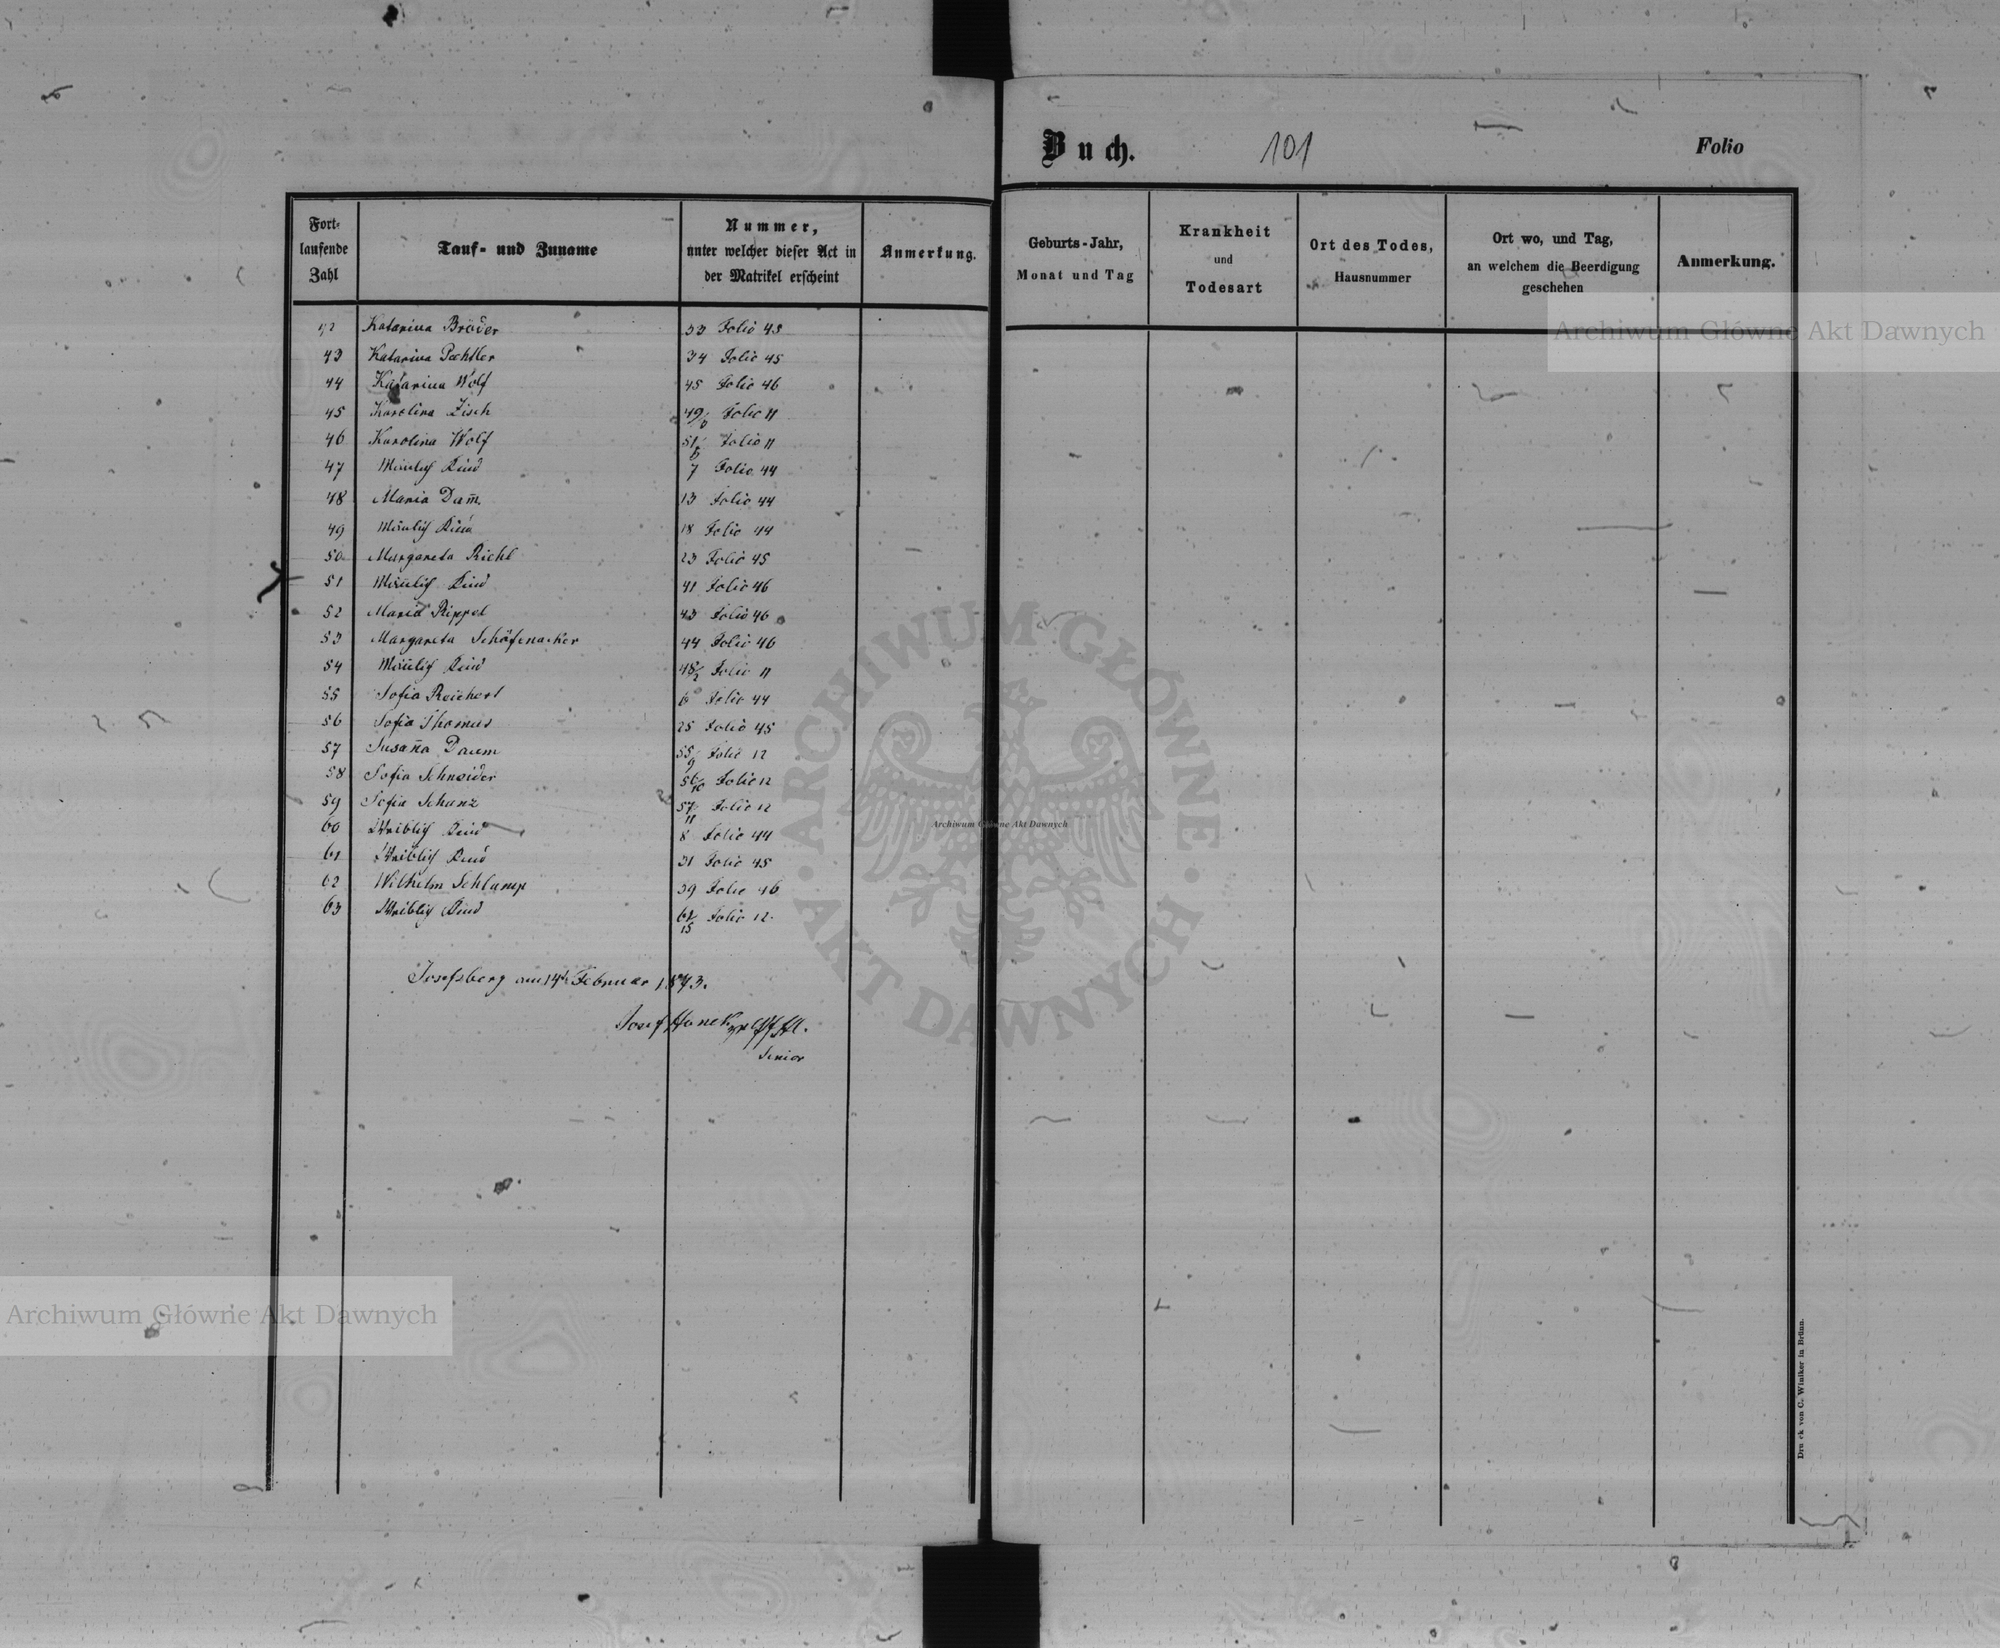 Fort-
laufende
Zahl
Tauf- und Zuname
Nummer,
unter welcher dieser Act in
der Matrikel erscheint
Anmerkung.
42 Katarina Bröder 33 Folio 45
43 Katarina Pechtler 34 Folio 45
44 Katarina Wolf 45 Folio 46
45 Karolina Zisch 49/3 Folio 11
46 Karolina Wolf 51/5 Folio 11
47 Mänlich Kind 7 Folio 44
48 Maria Dam̅ 13 Folio 44
49 Mänlich Kind 18 Folio 44
50 Margareta Richl 23 Folio 45
51 Mänlich Kind 41 Folio 46
52 Maria Rippel 43 Folio 46
53 Margareta Schäfenacker 44 Folio 46
54 Mänlich Kind 48/2 Folio 11
55 Sofia Reichert 6 Folio 44
56 Sofia Thomas 25 Folio 45
57 Susan̅a Daum 55/9 Folio 12
58 Sofia Schneider 56/10 Folio 12
59 Sofia Schanz 57/11 Folio 12
60 Weiblich Kind 8 Folio 44
61 Weiblich Kind 31 Folio 45
62 Wilhelm Schlamp 39 Folio 46
63 Weiblich Kind 61/15 Folio 12.
Josefsberg am 14t Februar 1873.
Josef Honek
Senior
Buch. 101 Folio
Geburts-Jahr,
Monat und Tag
Krankheit
und
Todesart
Ort des Todes,
Hausnummer
Ort wo, und Tag,
an welchem die Beerdigung
geschehen
Anmerkung.
Druck von C. Winiker in Brünn.
Archiwum Główne Akt Dawnych
ARCHIWUM GŁÓWNE AKT DAWNYCH
Archiwum Główne Akt Dawnych
Archiwum Główne Akt Dawnych